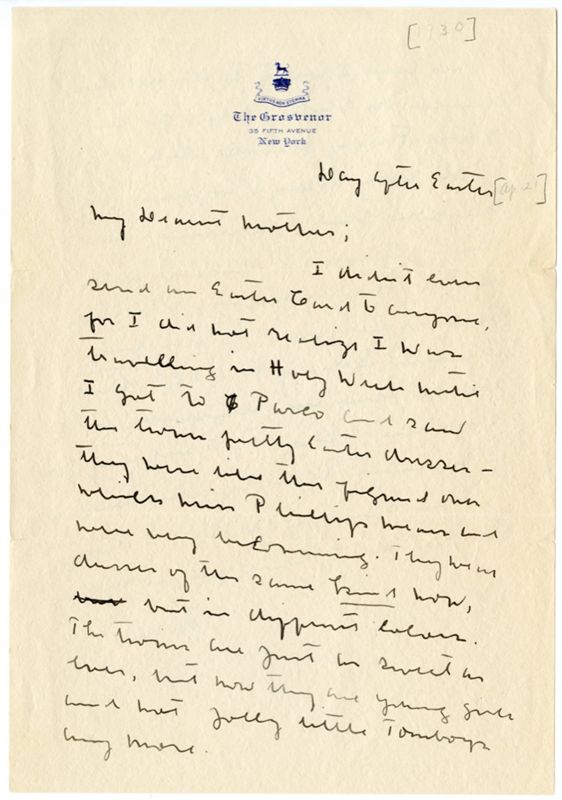 [1930]
VIRTUS NON STEMMA
The Grosvenor
35 FIFTH AVENUE
New York
Day after Easter [Ap 21]
My Dearest Mother;
I didn't even
send an Easter Card to anyone,
for I did not realize I was
travelling in Holy Week until
I got to Pasco and saw
the twins pretty Easter dresses -
they were like the figured ones
which Miss Phillips wears and
were very becoming. They wear
dresses of the same kind now,
but in different colors.
The twins are just as sweet as
ever, but now they are young girls
and not jolly little Tomboys
any more.